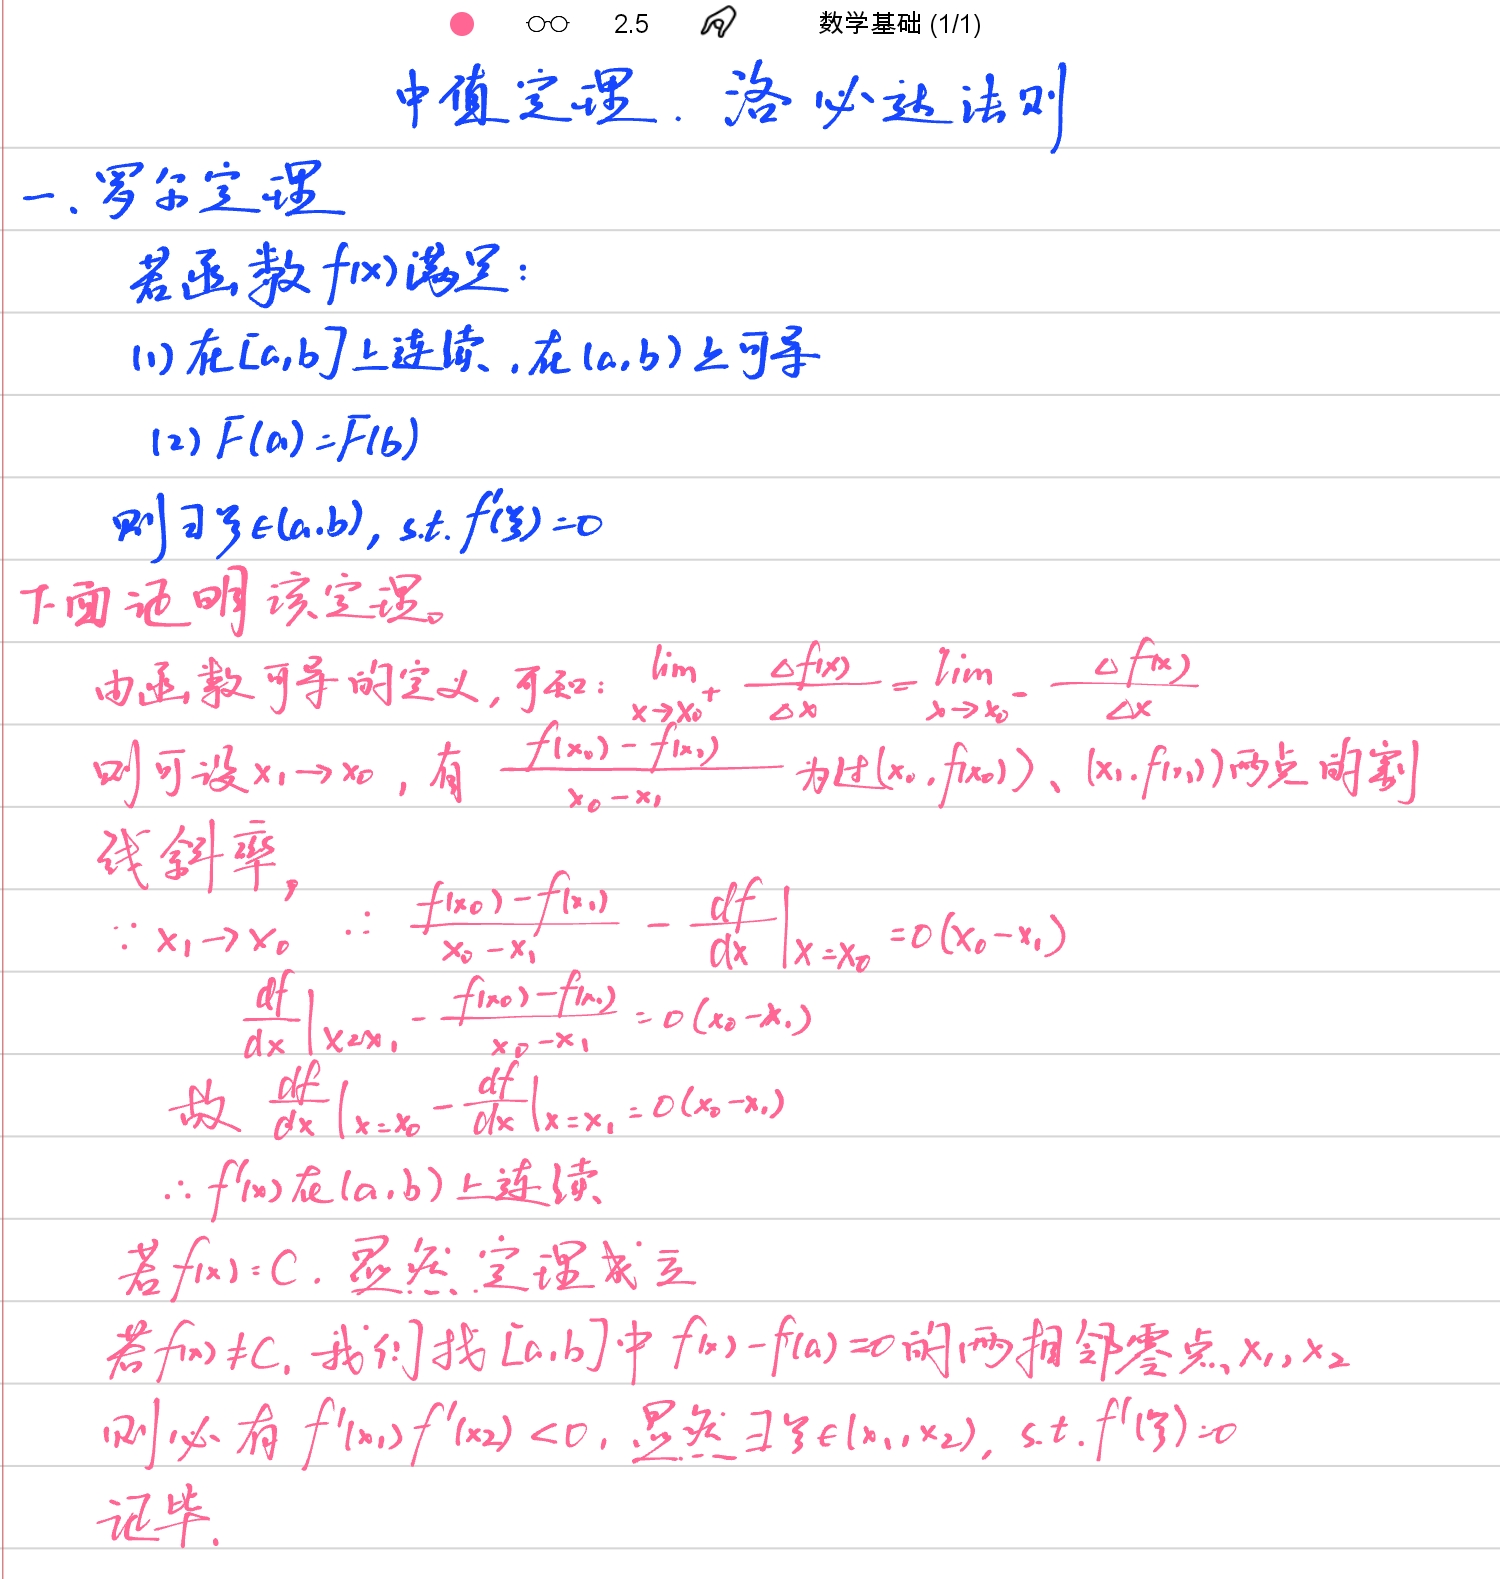 2.5 数学基础 (1/1)
中值定理. 洛必达法则
一. 罗尔定理
若函数 f(x) 满足:
(1) 在[a,b]上连续, 在(a,b)上可导
(2) F(a)=F(b)
则∃ξ∈(a.b), s.t. f'(ξ)=0
下面证明该定理。
由函数可导的定义, 可知: lim x→x₀⁺ Δf(x)/Δx = lim x→x₀⁻ Δf(x)/Δx
则可设 x₁→x₀, 有 (f(x₀)-f(x₁))/(x₀-x₁) 为过(x₀,f(x₀))、(x₁.f(x₁))两点的割
线斜率,
∵ x₁→x₀ ∴ (f(x₀)-f(x₁))/(x₀-x₁) - df/dx|x=x₀ = o(x₀-x₁)
df/dx|x=x₁ - (f(x₀)-f(x₁))/(x₀-x₁) = o(x₀-x₁)
故 df/dx|x=x₀ - df/dx|x=x₁ = o(x₀-x₁)
∴ f'(x)在(a,b)上连续
若f(x)=C. 显然定理成立
若f(x)≠C, 我们找[a,b]中 f(x)-f(a)=0的两相邻零点 x₁, x₂
则必有 f'(x₁)f'(x₂)<0, 显然∃ξ∈(x₁,x₂), s.t. f'(ξ)=0
证毕.